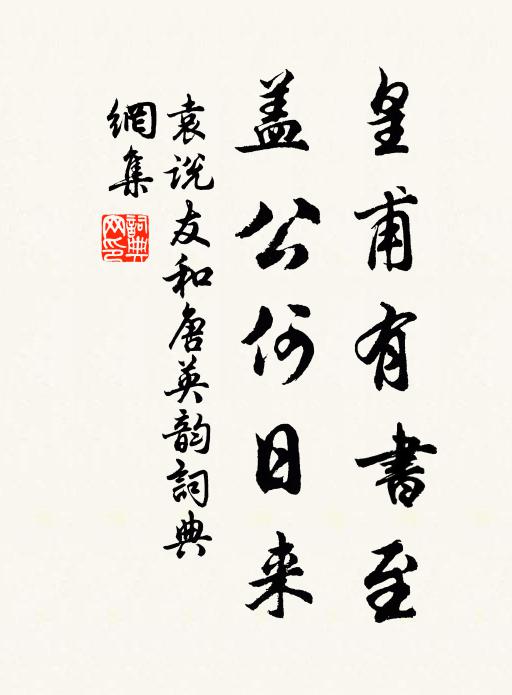 皇甫有書至
盖公何日来
袁说友和唐英韵詞典
網集
詞典
网印